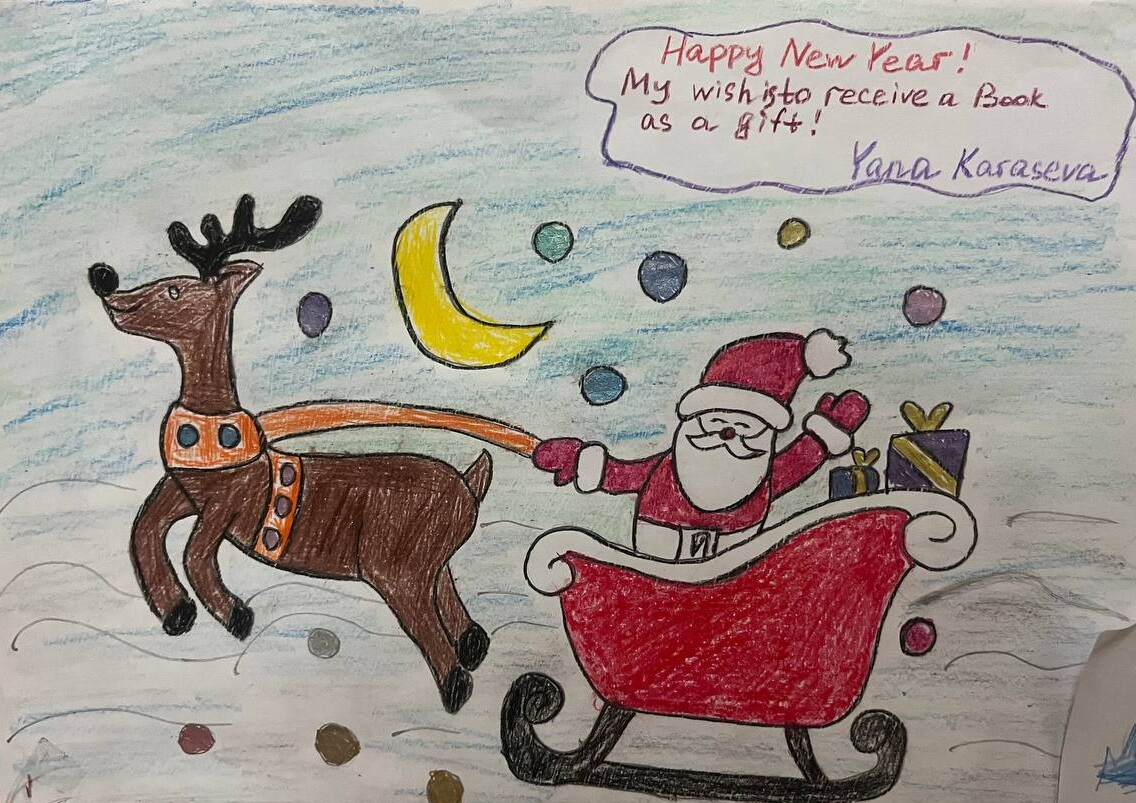 Happy New Year!
My wish is to receive a Book
as a gift!
Yana Karaseva